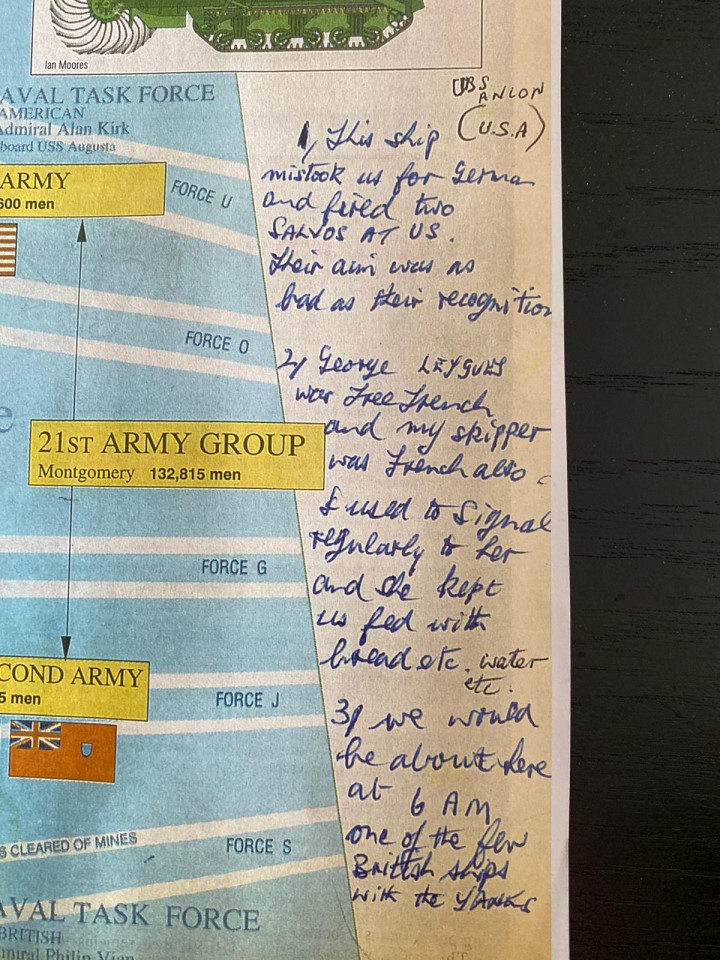 Ian Moores
AVAL TASK FORCE
AMERICAN
Admiral Alan Kirk
board USS Augusta
ARMY
600 men
FORCE U
FORCE O
21ST ARMY GROUP
Montgomery 132,815 men
FORCE G
COND ARMY
5 men
FORCE J
S CLEARED OF MINES
FORCE S
AVAL TASK FORCE
BRITISH
miral Philip Vian
USS
ANCON
(U.S.A)
1, This ship
mistook us for German
and fired two
SALVOS AT US.
Their aim was as
bad as their recognition
2, George LEYGUES
was Free French
and my skipper
was French also
I used to signal
regularly to her
and she kept
us fed with
bread etc. water
etc.
3, we would
be about here
at 6 AM
one of the few
British ships
with the YANKS